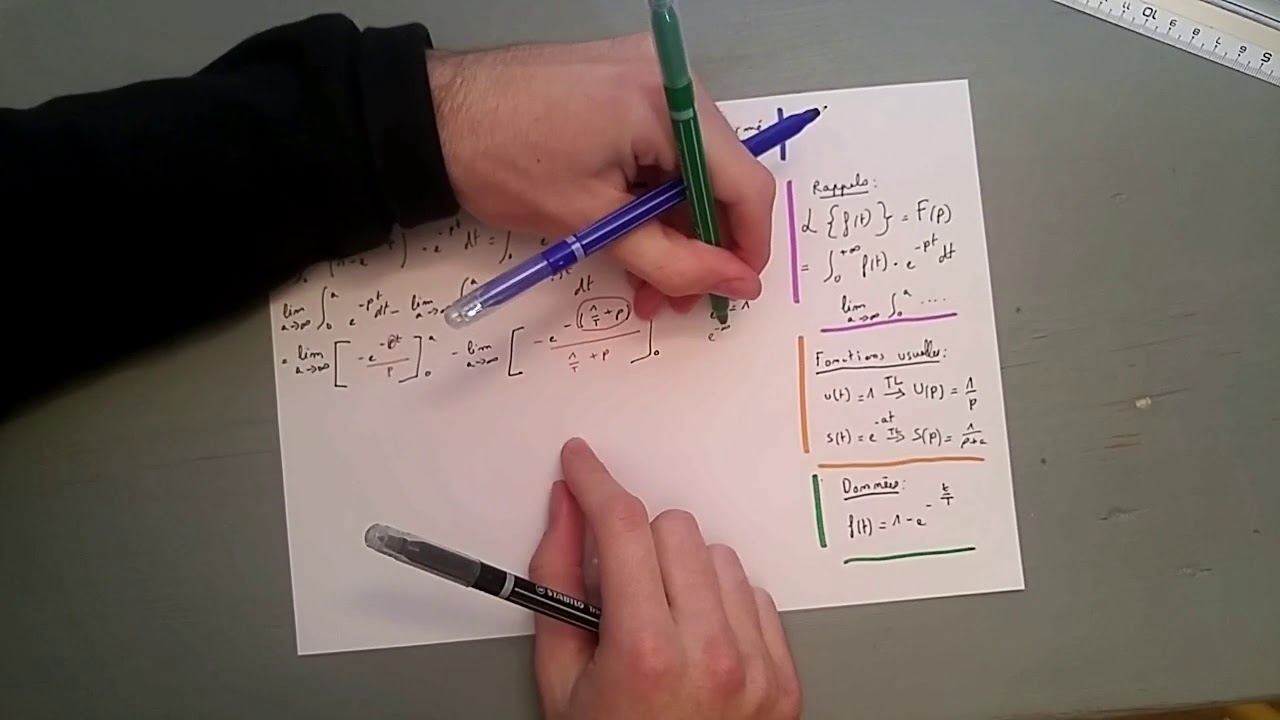 Rappels:
ℒ {f(t)} = F(p)
= ∫₀^+∞ f(t) · e^-pt dt
lim a→∞ ∫₀^a ....
Fonctions usuelles:
u(t) = 1 TL→ U(p) = 1/p
s(t) = e^-at TL→ S(p) = 1/p+a
Données:
f(t) = 1 - e^-t/T
· e^-pt dt = ∫₀
lim a→∞ ∫₀^a e^-pt dt - lim a→∞ ∫₀^a
dt
= lim a→∞ [-e^-pt/p]₀^a - lim a→∞ [-e^-(1/T + p)/1/T + p]₀
= 1
e^-∞
STABILO
5 6 7 8 9 10 11